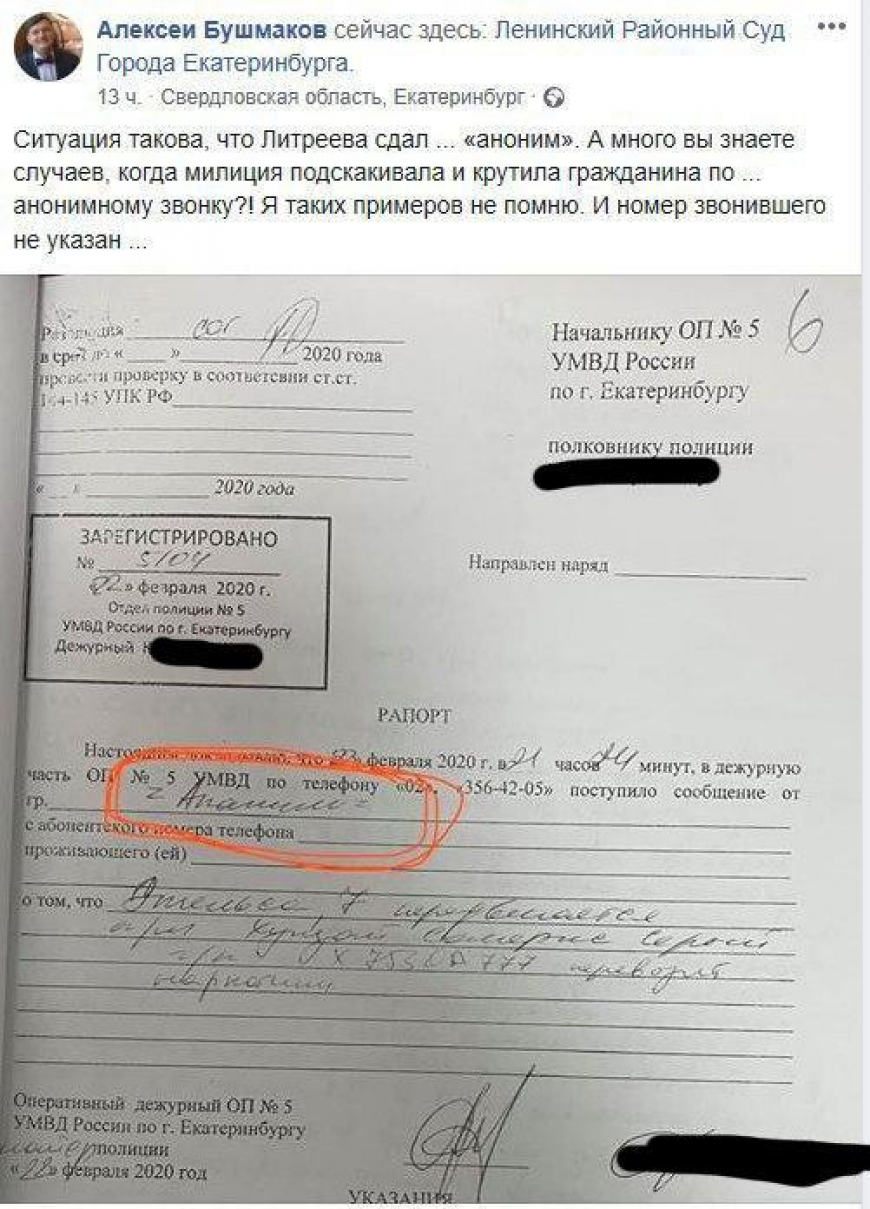 Алексей Бушмаков сейчас здесь: Ленинский Районный Суд
Города Екатеринбурга.
13 ч. · Свердловская область, Екатеринбург ·
Ситуация такова, что Литреева сдал ... «аноним». А много вы знаете
случаев, когда милиция подскакивала и крутила гражданина по ...
анонимному звонку?! Я таких примеров не помню. И номер звонившего
не указан ...
6
Начальнику ОП № 5
УМВД России
по г. Екатеринбургу
полковнику полиции
в срок до «____»__________ 2020 года
провести проверку в соответсвии ст.ст.
144-145 УПК РФ
«___»__________ 2020 года
ЗАРЕГИСТРИРОВАНО
№ 5104
«22» февраля 2020 г.
Отдел полиции № 5
УМВД России по г. Екатеринбургу
Дежурный
Направлен наряд
РАПОРТ
Настоящим докладываю, что февраля 2020 г. в 21 часов минут, в дежурную
часть ОП № 5 УМВД по телефону «02», «356-42-05» поступило сообщение от
гр. Аноним
с абонентского номера телефона
проживающего (ей)
о том, что
наркотики
Оперативный дежурный ОП № 5
УМВД России по г. Екатеринбургу
майор полиции
«22» февраля 2020 год
УКАЗАНИЯ